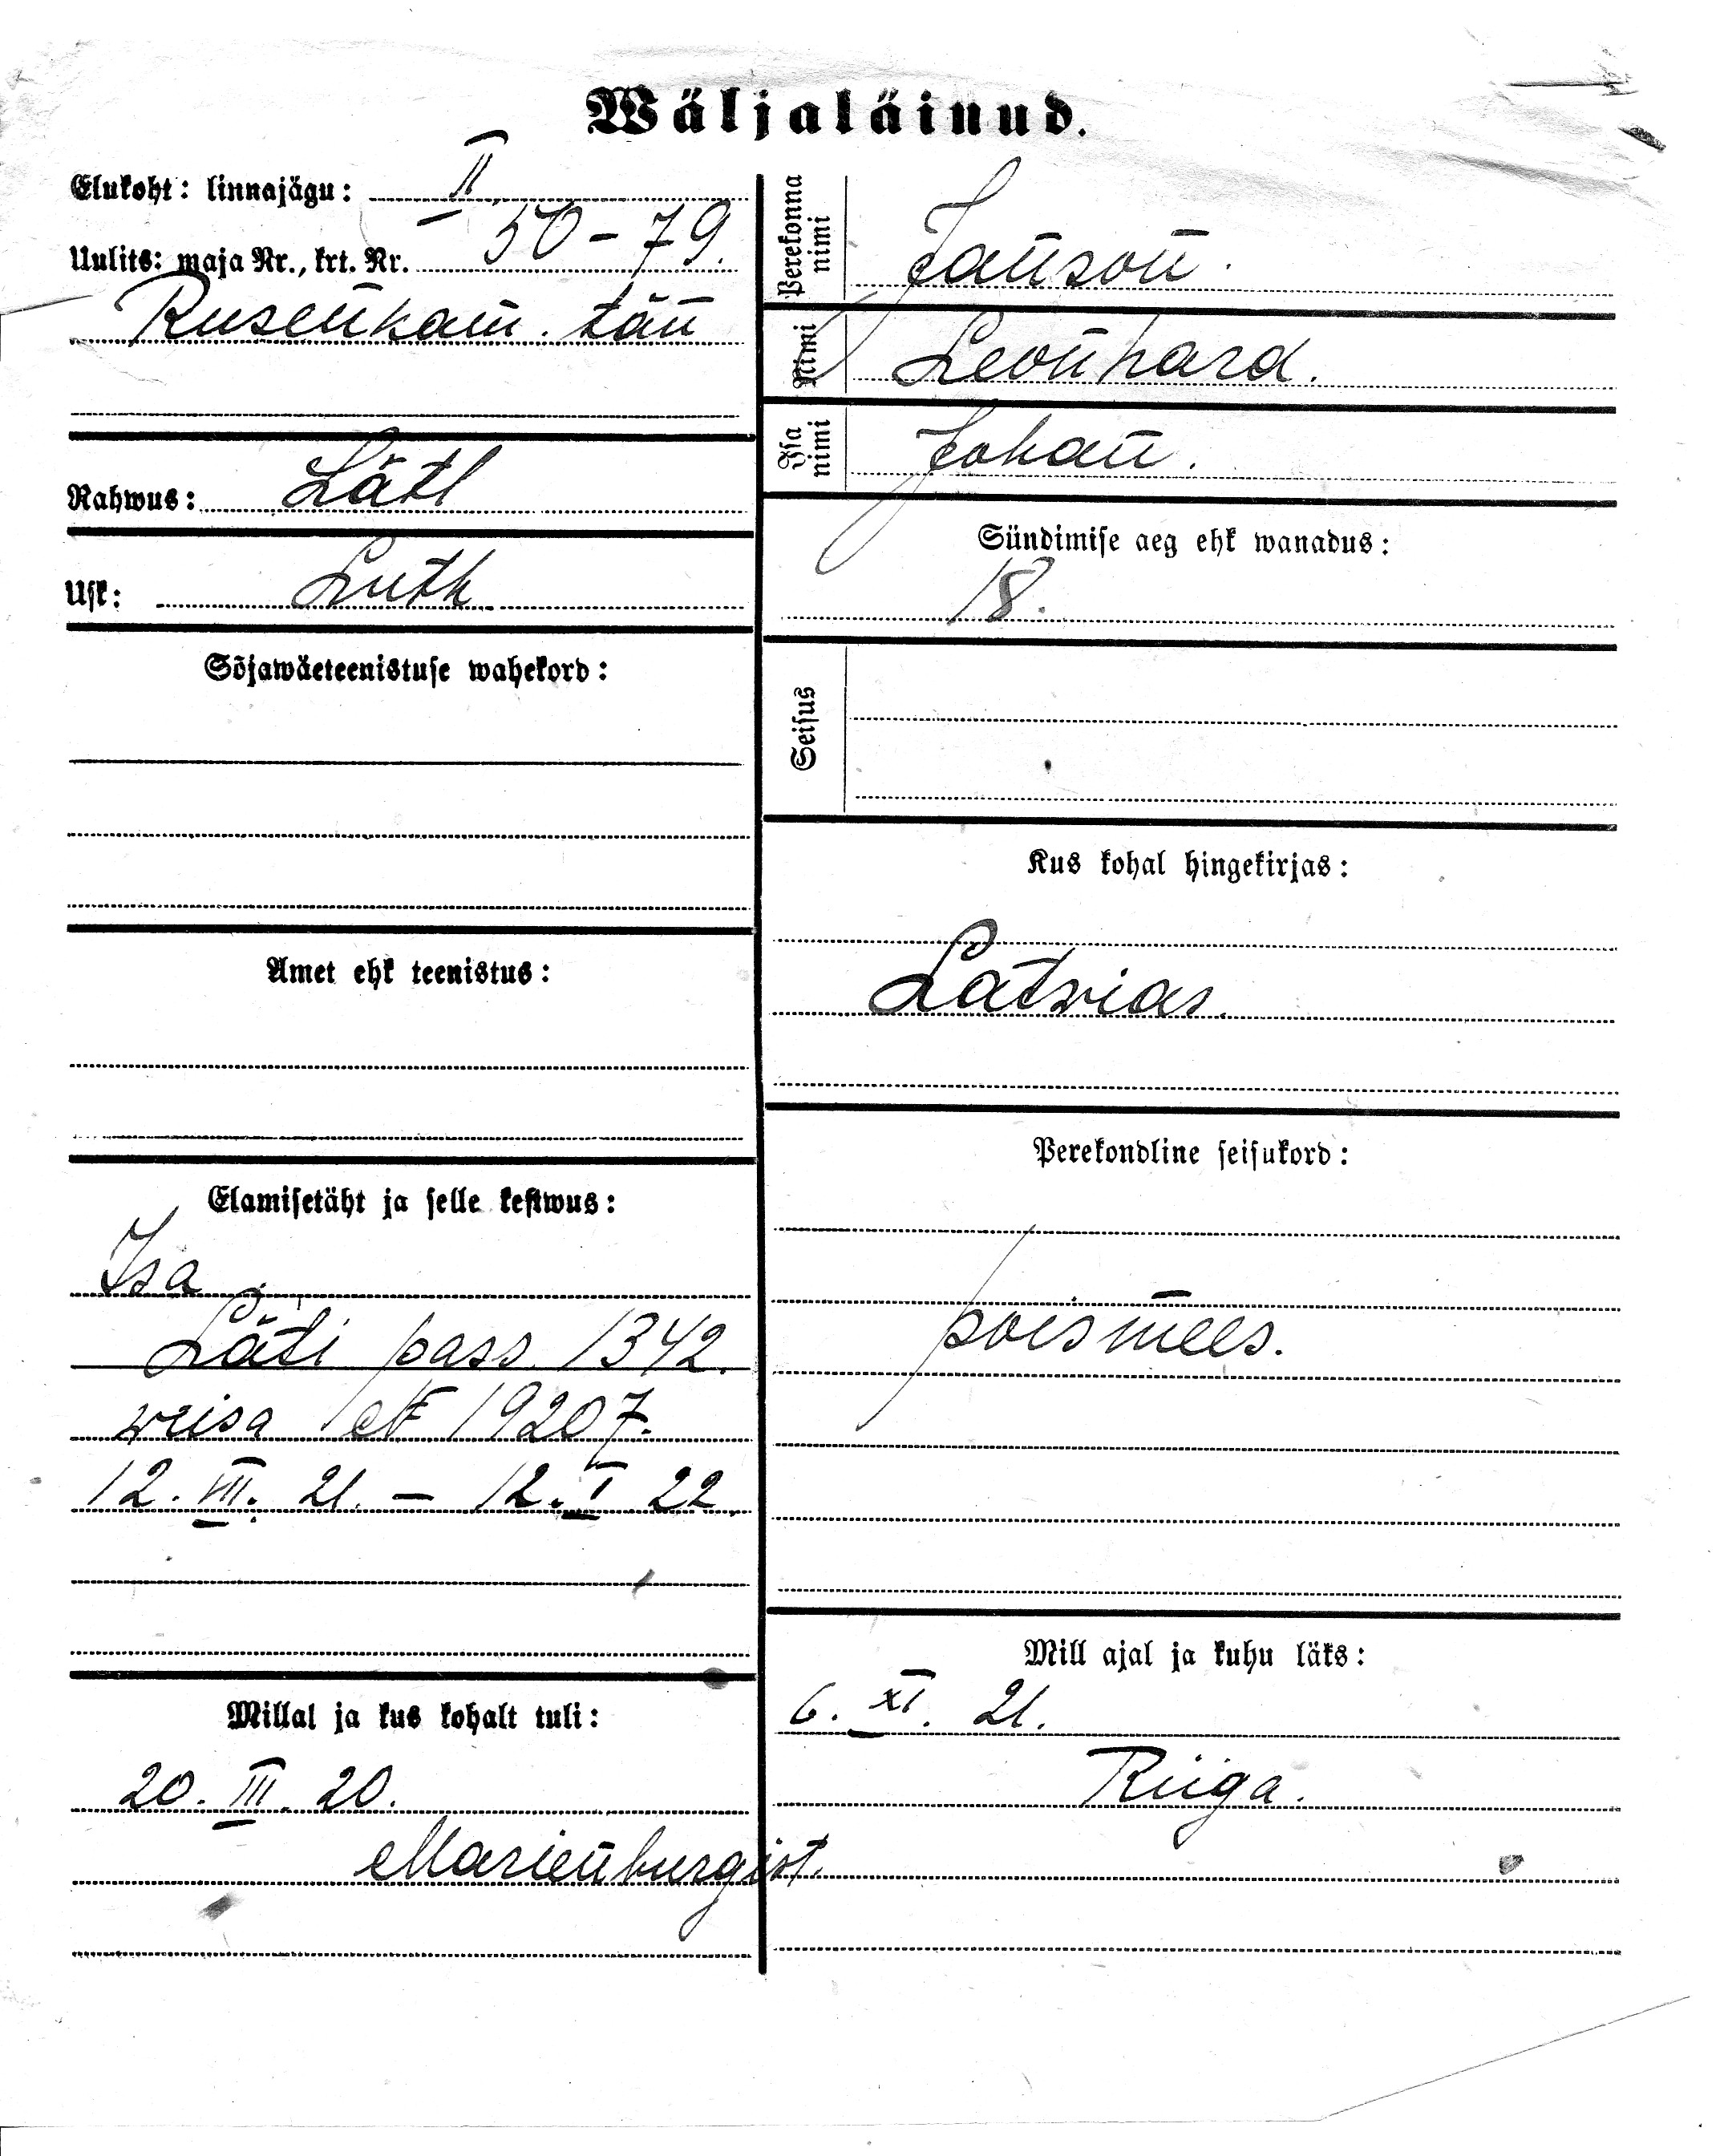 Wäljaläinud.
Elukoht: linnajägu: II
Uulits: maja Nr., krt. Nr. 50-79.
Rusenkam. tän
Rahwus: Lätl
Usk: Luth
Sõjawäeteenistuse wahekord:
Amet ehk teenistus:
Elamisetäht ja selle kestwus:
Isa
Läti pass. 1342.
weisa № 19207.
12. VII. 21. – 12. I 22.
Millal ja kus kohalt tuli:
20. III. 20.
Marienburgist.
Perekonna nimi Janson.
Nimi Leonhard.
Isa nimi Johan.
Sündimise aeg ehk wanadus:
18.
Seisus
Kus kohal hingekirjas:
Latwias.
Perekondline seisukord:
poismees.
Mill ajal ja kuhu läks:
6. XI. 21.
Riiga.